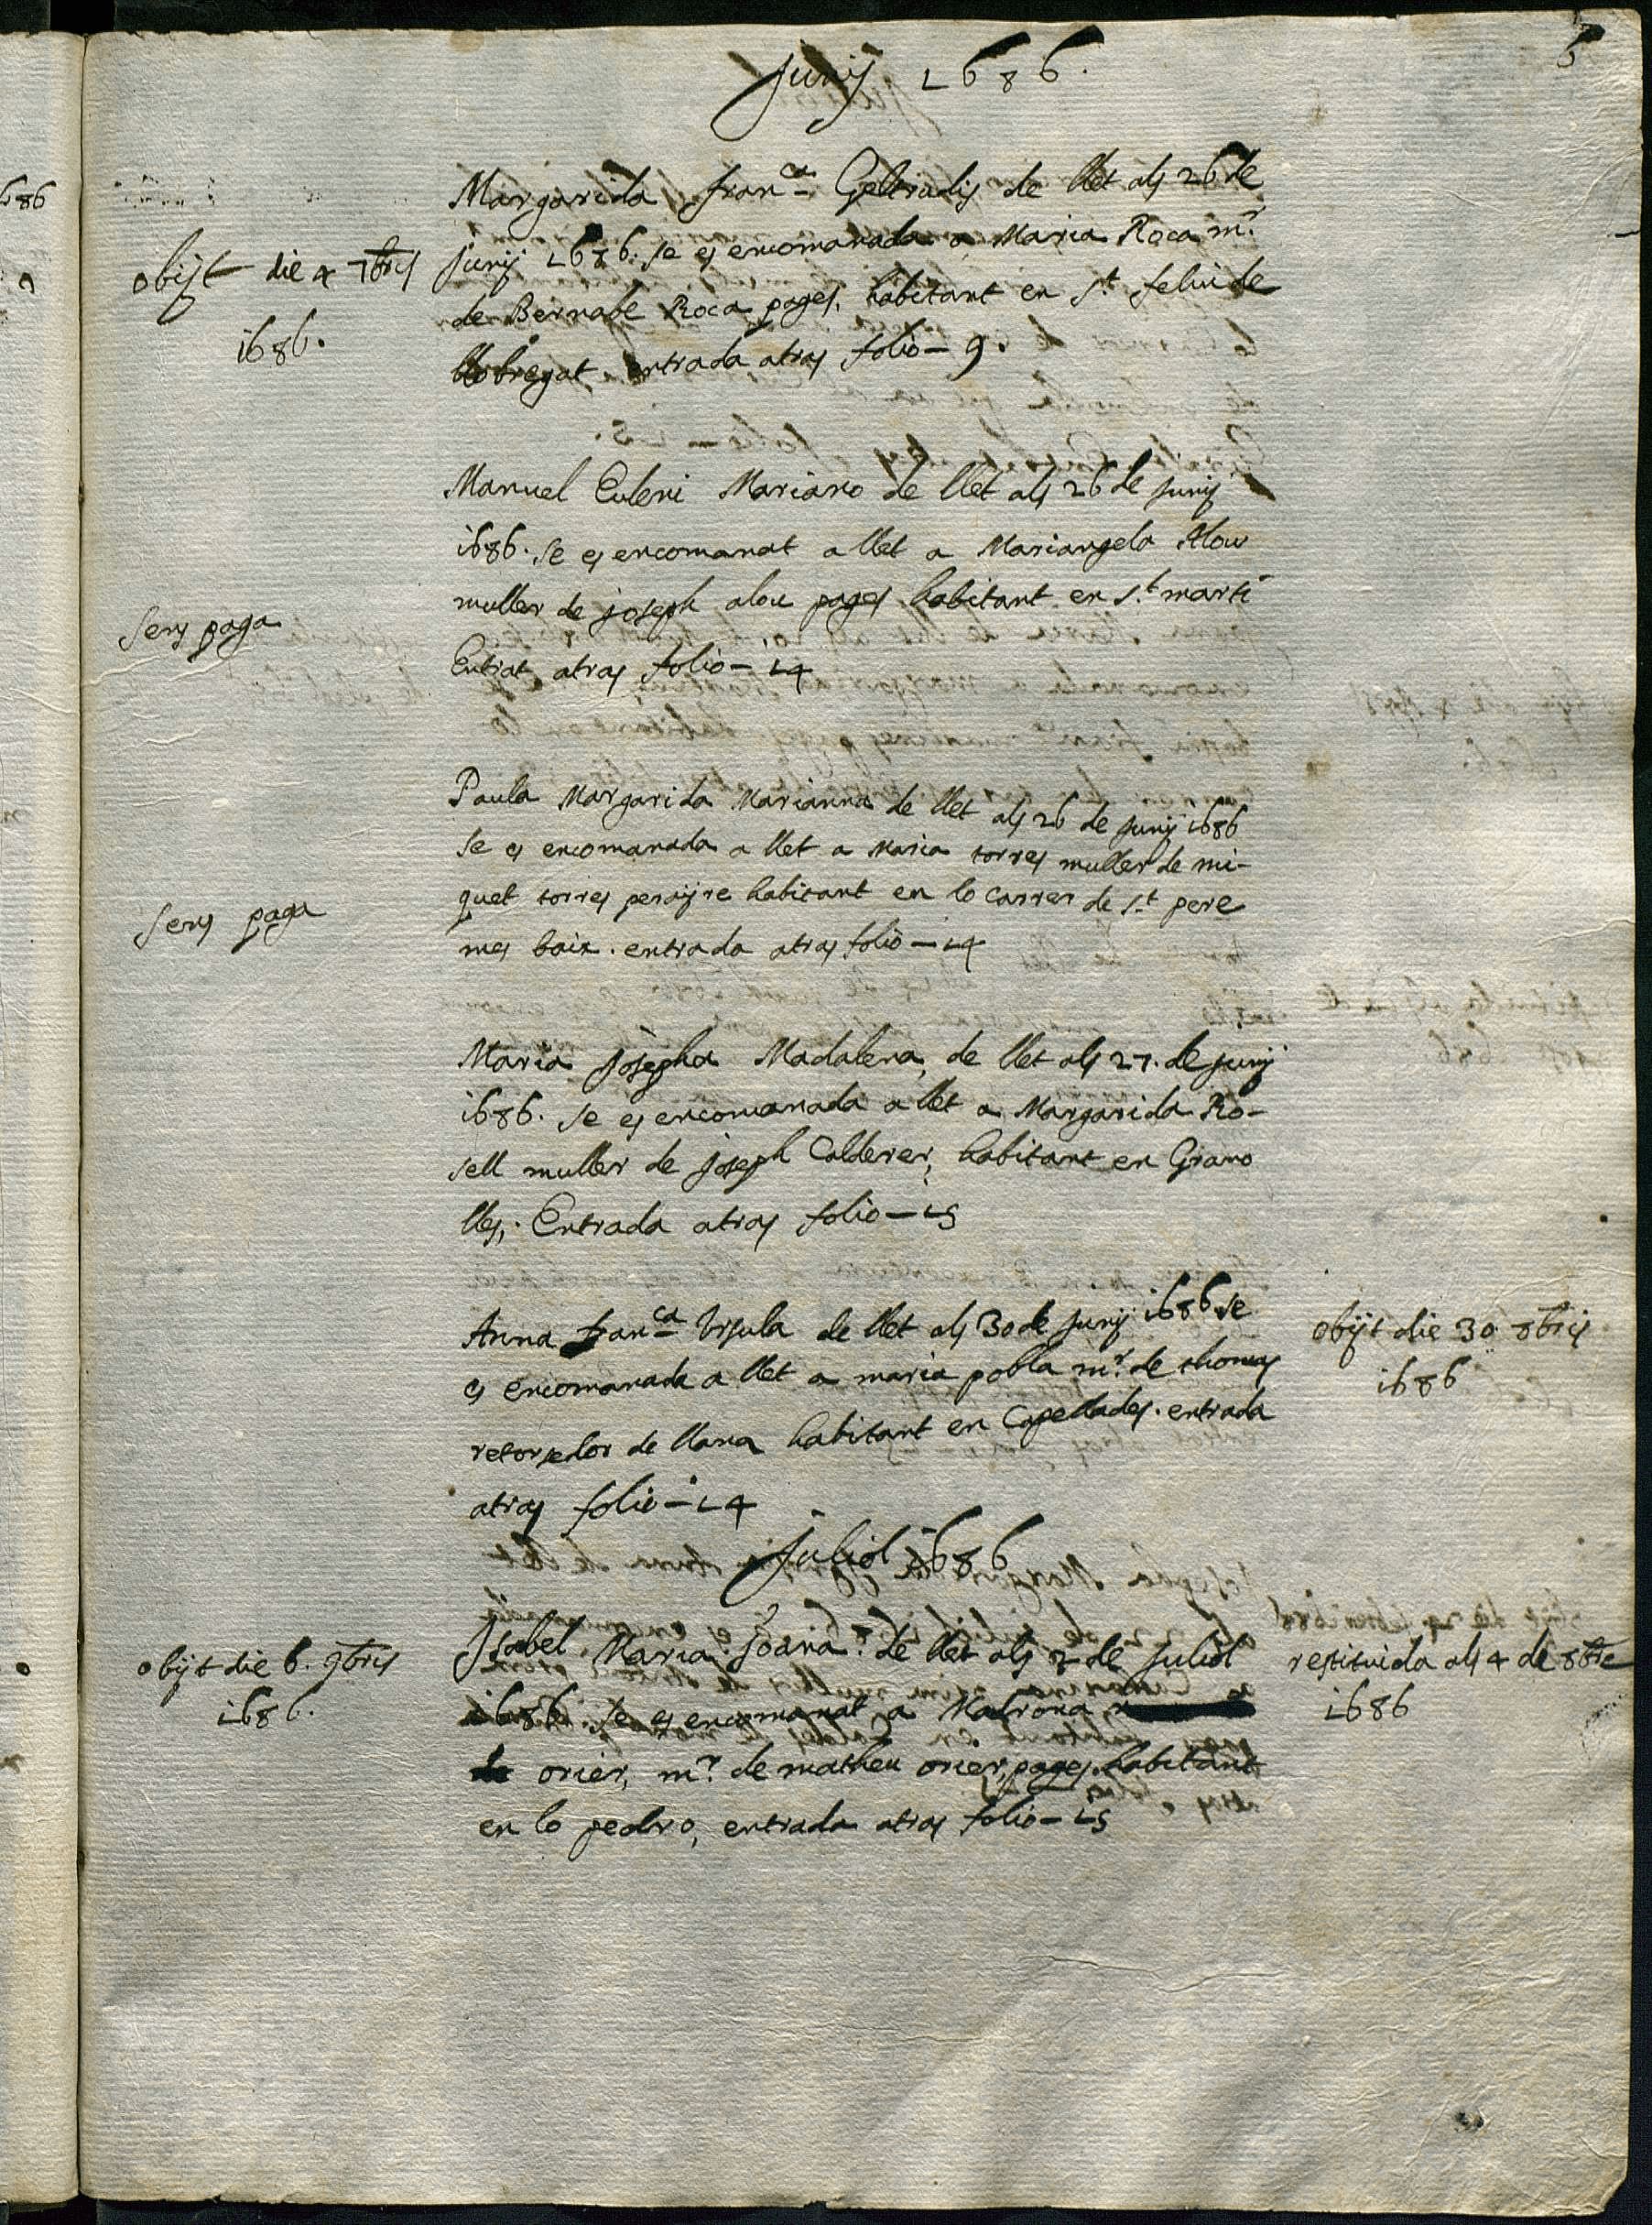 5
Junij 1686.
Margarida Fran.ca Geltrudis de llet als 26 de
Junij 1686. se es encomanada a Maria Roca m.r
de Bernabe Roca pages, habitant en S.t feliu de
llobregat entrada atras folio - 9.
obijt die 4 7bris
1686.
Manuel Euleni Mariano de llet als 26 de junij
1686. se es encomanat a llet a Mariangela Alou
muller de joseph alou pages habitant en S.t marti
Entrat atras folio - 14
sens paga
Paula Margarida Marianna de llet als 26 de junij 1686
se es encomanada a llet a Maria torres muller de mi-
quel torres perayre habitant en lo carrer de S.t pere
mes baix. entrada atras folio - 14
sens paga
Maria josepha Madalena, de llet als 27. de junij
1686. se es encomanada a llet a Margarida Ro-
sell muller de joseph Calderer, habitant en Grano
lles,. Entrada atras folio - 15
Anna Fran.ca Ursula de llet als 30 de junij 1686 se
es encomanada a llet a maria pobla m.r de thomas
retorsedor de llana habitant en Capellades. entrada
atras folio - 14
obijt die 30 8bris
1686
Juliol 1686
Isabel Maria Joana. de llet als 2 de Juliol
1686. se es encomanat a Madrona
orier, m.r de matheu orier, pages, habitant
en lo pedro, entrada atras folio - 15
obijt die 6. 9bris
1686.
restituida als 4 de 8bre
1686